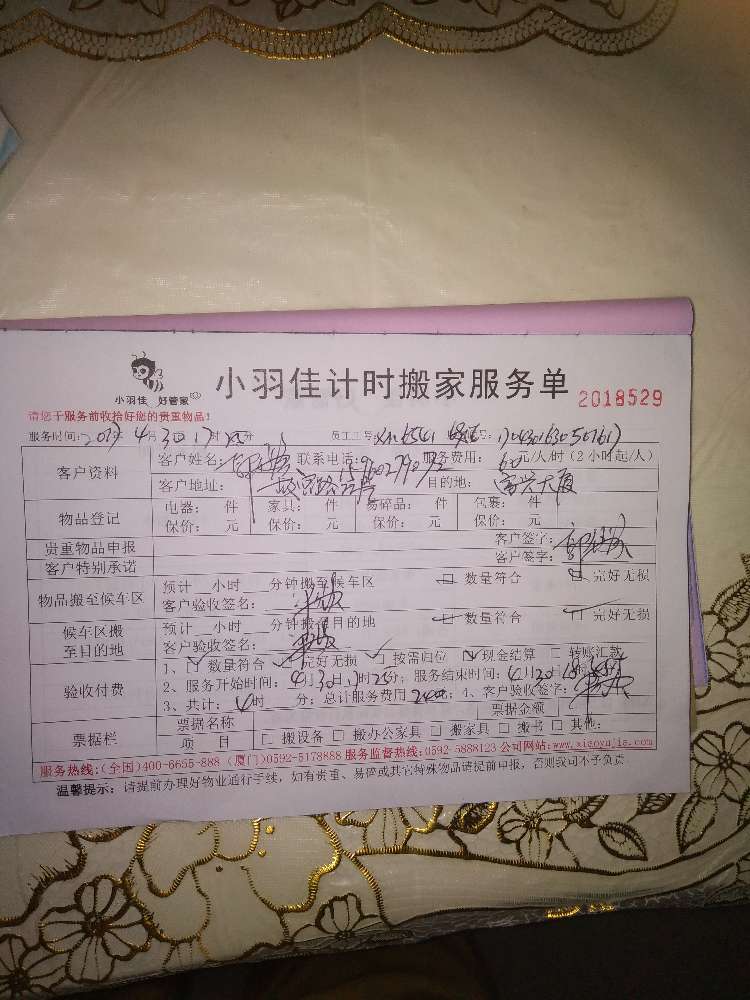 小羽佳 好管家
小羽佳计时搬家服务单 2018529
请您于服务前收拾好您的贵重物品!
服务时间: 2017年4月30 17时 分 员工工号: 号:
客户资料 客户姓名: 联系电话: 服务费用: 60元/人/时(2小时起/人)
客户地址: 目的地: 富兴大厦
物品登记 电器: 件 家具: 件 易碎品: 件 包裹: 件
保价: 元 保价: 元 保价: 元 保价: 元
贵重物品申报 客户签字:
客户特别承诺 客户签字:
物品搬至候车区 预计 小时 分钟搬至候车区 数量符合 完好无损
客户验收签名:
候车区搬至目的地 预计 小时 分钟搬至目的地 数量符合 完好无损
客户验收签名:
验收付费 1、 数量符合 完好无损 按需归位 现金结算 转账汇款
2、服务开始时间: 4月30日 时 分; 服务结束时间: 4月30日
3、共计: 4时 分; 总计服务费用 240元; 4、客户验收签字:
票据栏 票据名称 票据金额
项 目 搬设备 搬办公家具 搬家具 搬书 其他:
服务热线:(全国)400-6655-888 (厦门)0592-5178888 服务监督热线:0592-5888123 公司网站:www.xiaoyujia.com
温馨提示: 请提前办理好物业通行手续, 如有贵重、易碎或其它特殊物品请提前申报, 否则我司不予负责